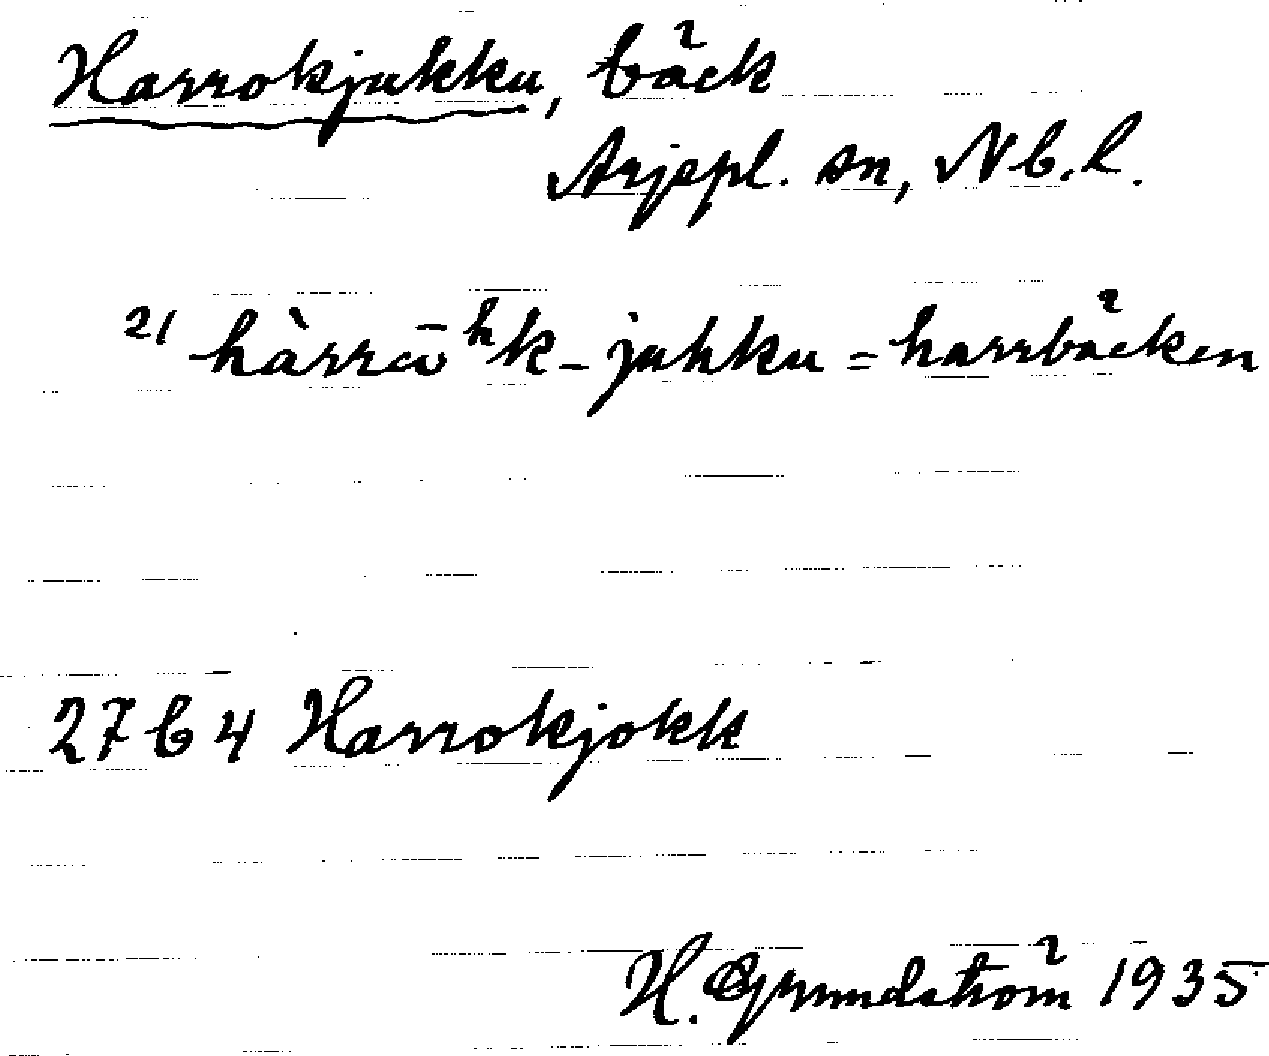 Harrokjukku, bäck
Arjepl. sn, Nb. l.
21 hàrrā ʰk-jukku = harrbäcken
27 b 4 Harrokjokk
H. Grundström 1935